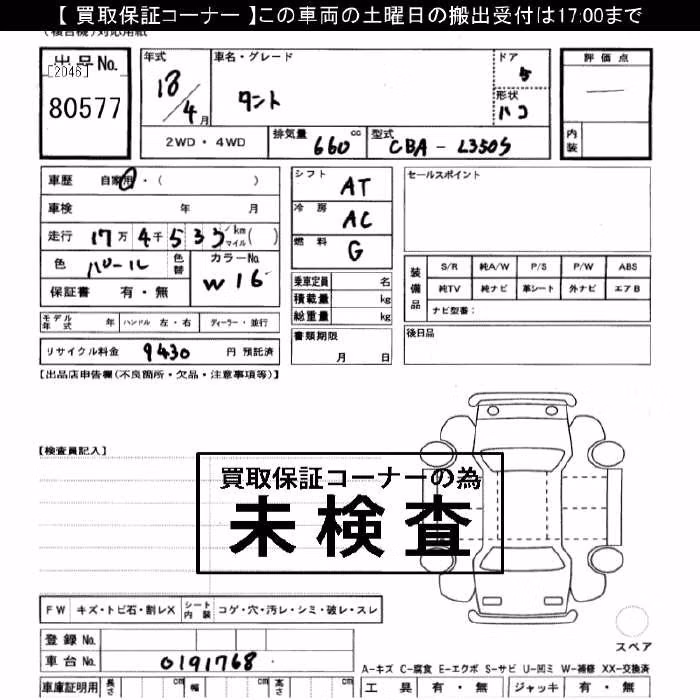 【 買取保証コーナー 】この車両の土曜日の搬出受付は17:00まで
出品No.
[2046]
80577
年式
18/4月
車名・グレード
タント
ドア
5
形状
ハコ
評価点
—
内装
2WD・4WD
排気量 660 cc
型式 CBA - L350S
車歴 自家用・( )
車検 年 月
走行 17万4千533 km マイル( )
色 パール 色替
カラーNo. W16
保証書 有・無
モデル年式 年 ハンドル 左・右 ディーラー・並行
リサイクル料金 9430 円 預託済
シフト AT
冷房 AC
燃料 G
乗車定員 名
積載量 kg
総重量 kg
書類期限
月 日
セールスポイント
装備品
S/R 純A/W P/S P/W ABS
純TV 純ナビ 革シート 外ナビ エアB
ナビ型番:
後日品
【出品店申告欄(不良箇所・欠品・注意事項等)】
【検査員記入】
買取保証コーナーの為
未検査
FW キズ・トビ石・割レX シート内装 コゲ・穴・汚レ・シミ・破レ・スレ
登録No.
車台No. 0191768
車庫証明用 長さ cm 幅 cm 高さ cm
スペア
A-キズ C-腐食 E-エクボ S-サビ U-凹ミ W-補修 XX-交換済
工具 有・無 ジャッキ 有・無